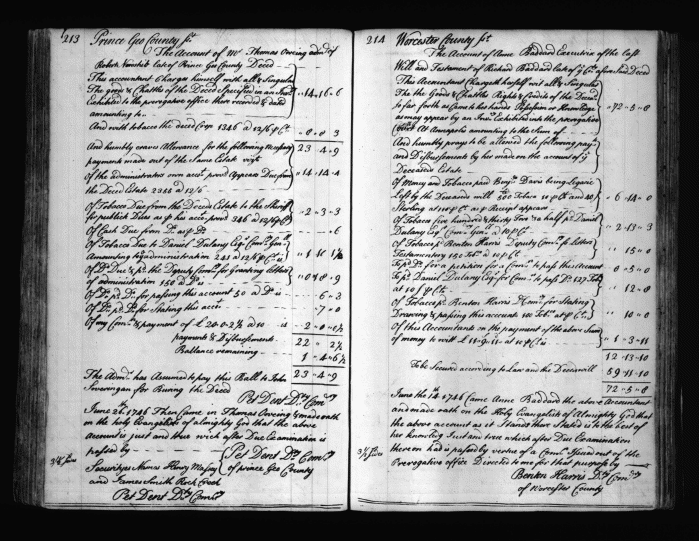 213 Prince Geo County ss.
The Account of Mr Thomas Owring admr of
Robert late of Prince Geo County Deced
This accountant Chargeth himself with all & Singular
The goods & Chattles of the Deced Specified in an Invy
Exhibited to the prerogative office there recorded & dated
amounting to " 14 " 16 " 6
And with tobacco the deced Crop 1346 a 12/6 p Ct. " 8 " 8 " 3
And humbly craves Allowance for the following necessary 23 " 4 " 9
payments made out of the Same Estate vizt
of the administrators own accot proved Appear Due from " 14 " 14 " 4
the Deced Estate 2355 a 12/6
Of Tobacco Due from the Deceds Estate to the Sheriff
for publick Dues as p his accot proved 346 a 12/6 p Ct " 2 " 3 " 3
Of Cash Due from Do as p Do " 6
Of Tobacco Due to Daniel Dulany Esqr Comry Genl
Amounting to administration 281 a 12/6 p Ct is " 1 " 11 "
Of Do Due & pd. the Deputy Comry for Granting Letters
of administration 150 a Do is
Of Do pd. Do for passing this account 50 a Do is " 6 " 3
Of Do pd. Do for Stating this accot " 7 " 0
Of my Comn & payment of £ 20 " 0 " 2½ a 10 is " 2 " 0 "
payments & Disbursements 22 "
Ballance remaining " 1 " 4 " 6½
23 " 4 " 9
The Admr. has Assumed to pay this Ball to John
for Buring the Deced
Pet Dent Dy Comry
June 26th 1746 Then Came in Thomas Owring & made oath
on the holy Evangelists of almighty God that the above
Account is just and true wich after Due Examination is
passed by Pet Dent Dy Comry
of prince Geo County
Securitys Names Henry Massy
and James Smith Rock Creek
Pet Dent Dy Comry
214 Worcester County ss.
The Account of Anne Baddard Executrix of the Last
Will and Testament of Richard Baddard late of ye Co. afore Said Deced
This Accountant Chargeth herself wit all & Singular
The the Goods & Chattles Rights & Credits of the Deced
so far forth as Came to his hands Possession or Knowledge " 72 " 5 " 8
as may appear by an Invy. Exhibited into the prerogative
Court At Annapolis amounting to the Sum of
And humbly prays to be allowed the following paymts
and Disbursements by his made on the account of ye
Deceased Estate
Of Money and Tobacco paid Benjn. Davis being Legacie
Left by the Deceaseds will 500 Tobaco
Sterling at 10 p Ct as p Receipt appears " 6 " 14 " 0
Of Tobacco five hundred & thirty Two & a half pd Daniel
Dulany Esqr. Comry Genl. a 10 p Ct " 2 " 13 " 3
Of Tobacco pd. Benton Harris Deputy Comry for Letters
Testamentary 150 Tobo a 10 p Ct " 15 " 0
To pd. Do for a petition for a Comn. to pass this Account " 0 " 5 " 0
To pd. Daniel Dulany Esqr for Comn. to pass Do. 127 Tobo
at 10 p Ct. " 12 " 8
Of Tobacco pd. Benton Harris Dy Comry for Stating
Drawing & passing this account 100 Tobo. at p Ct. " 10 " 0
Of this Accountants on the payment of the above Sum
of money to wit £ 11 " 9 " 11 at 10 p Ct is " 1 " 3 " 11
12 " 13 " 10
To be Secured according to Law and the Deceds will 59 " 11 " 10
72 " 5 " 8
June the 14th 1746 Came Anne Baddard the above Accountant
and made oath on the Holy Evangelists of Almighty God that
the above account as it Stands there Stated is to the best of
her knowledg Just and true which after Due Examination
thereon had is passed by vertue of a Comn. Issued out of the
Prerogative office Directed to me for that purpose by
Benton Harris Dy Comry
of Worcester County